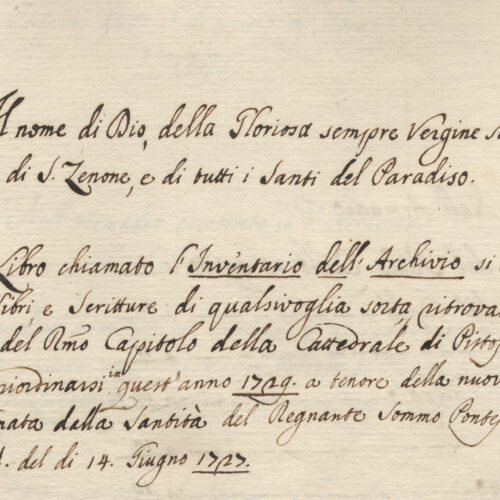 Al nome di Dio, della Gloriosa sempre Vergine
di S. Zenone, e di tutti i Santi del Paradiso.
Libro chiamato l'Inventario dell'Archivio si
libri e Scritture di qualsivoglia sorta ritrova
del Rmo Capitolo della Cattedrale di Pistoj
riordinarsi in quest'anno 1729. a tenore della nuov
nata dalla Santità del Regnante Sommo Ponte
del di 14. Giugno 1727.